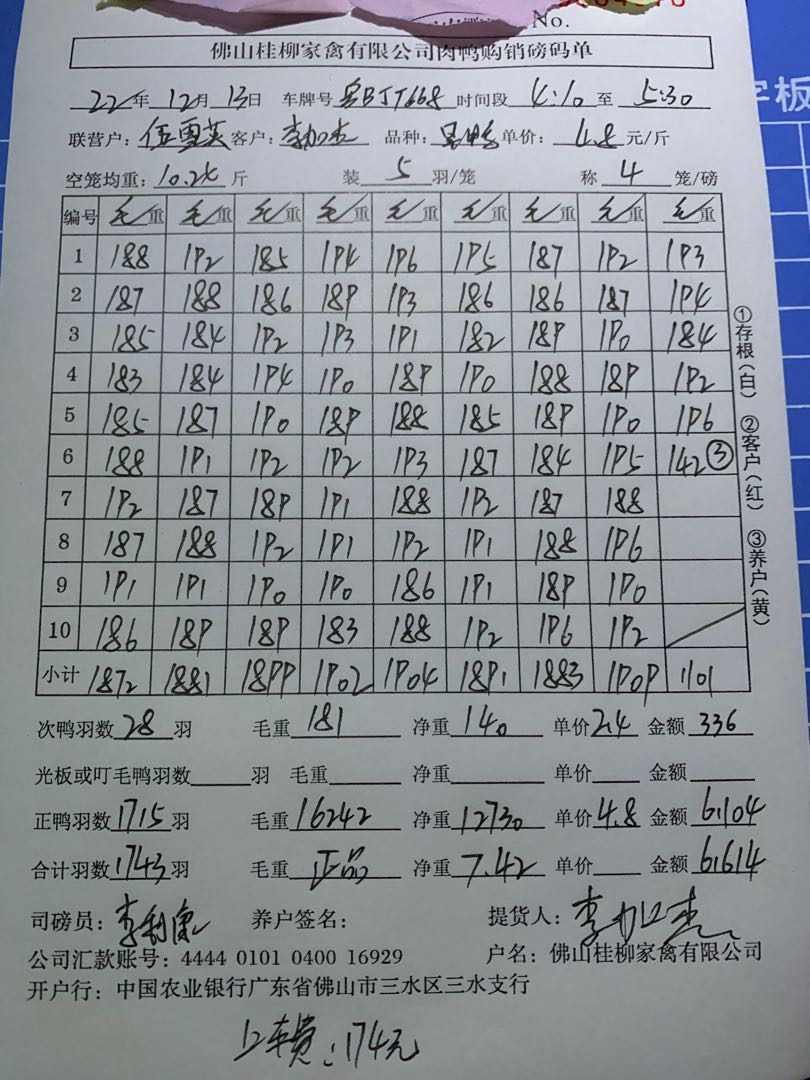 No.
佛山桂柳家禽有限公司肉鸭购销磅码单
22年 12月 13日 车牌号 粤BJT668 时间段 4:10 至 5:30
联营户: 伍雪英 客户: 李加杰 品种: 单价: 4.8 元/斤
空笼均重: 10.24 斤 装 5 羽/笼 称 4 笼/磅
编号 毛重 毛重 毛重 毛重 毛重 毛重 毛重 毛重 毛重
1 188 192 185 194 196 195 187 192 193
2 187 188 186 189 193 186 186 187 194
3 185 184 192 193 191 182 189 190 184
4 183 184 194 190 189 190 188 189 192
5 185 187 190 189 188 185 189 190 196
6 188 191 192 192 193 187 184 195 142③
7 192 187 189 191 188 192 187 188
8 187 188 192 191 192 191 188 196
9 191 191 190 190 186 191 189 190
10 186 189 189 183 188 192 196 192
小计 1872 1881 1899 1902 1904 1891 1883 1909 1101
①存根(白) ②客户(红) ③养户(黄)
次鸭羽数 28 羽 毛重 181 净重 140 单价 2.4 金额 336
光板或叮毛鸭羽数 羽 毛重 净重 单价 金额
正鸭羽数 1715 羽 毛重 16242 净重 12730 单价 4.8 金额 61104
合计羽数 1743 羽 毛重 正品 净重 7.42 单价 金额 61614
司磅员: 李利康 养户签名: 提货人: 李加杰
公司汇款账号: 4444 0101 0400 16929 户名: 佛山桂柳家禽有限公司
开户行: 中国农业银行广东省佛山市三水区三水支行
上车费: 174元
字板